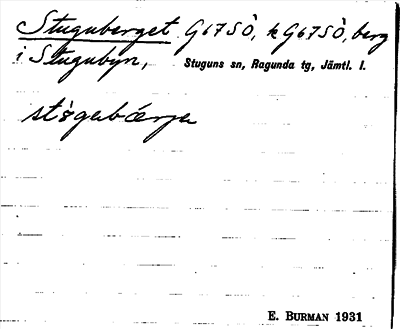 Stuguberget G67SÖ, k G67SÖ, berg
i Stugubyn, Stuguns sn, Ragunda tg, Jämtl. l.
støgabǽrje
E. BURMAN 1931